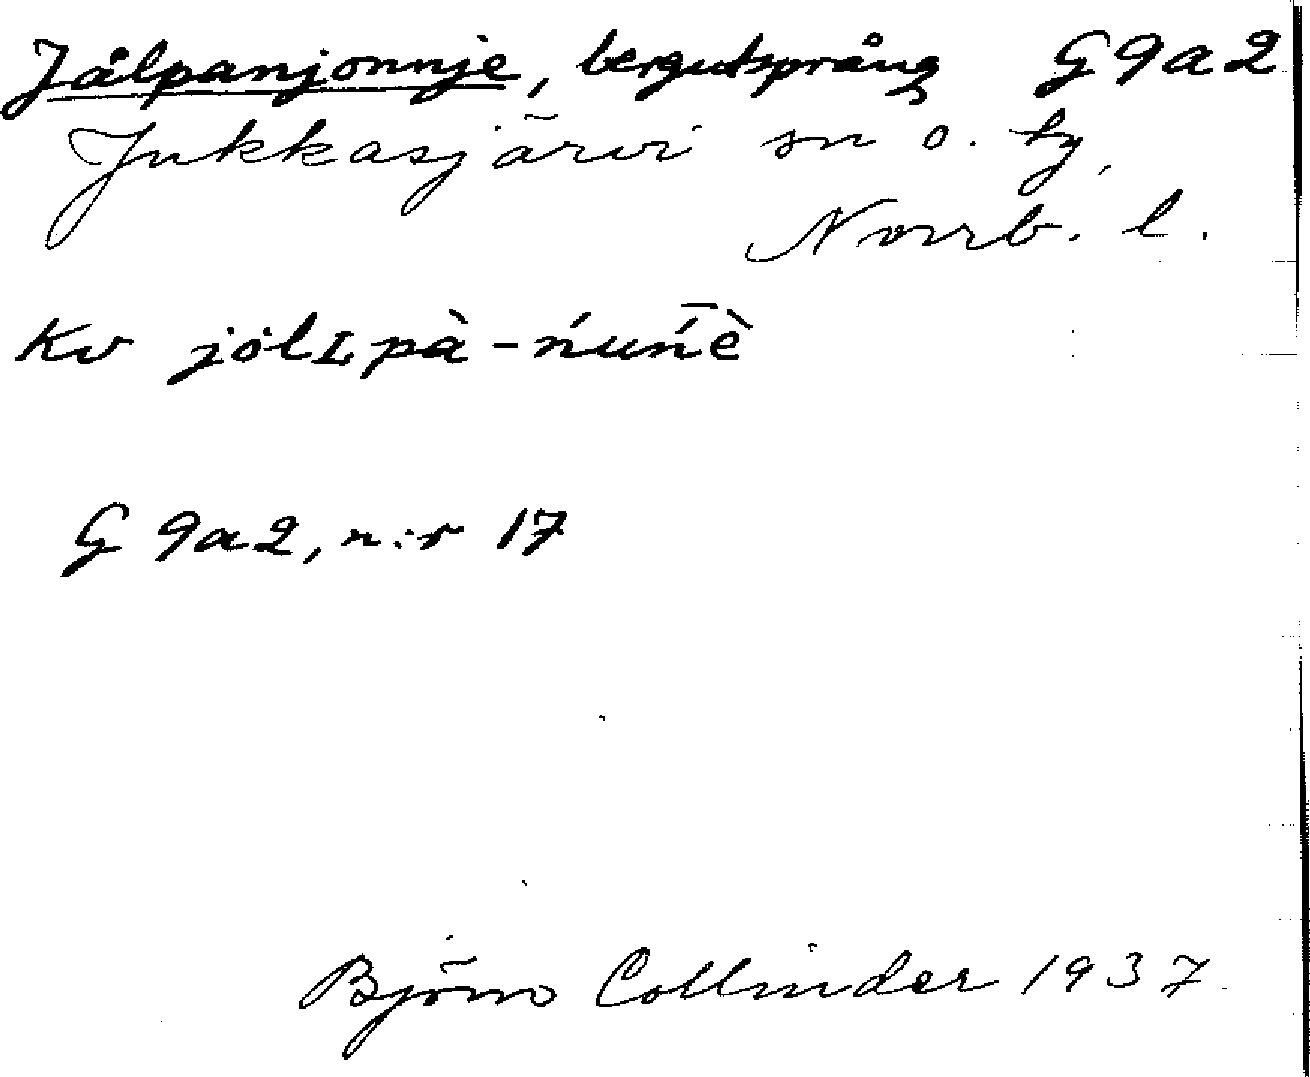 Jålpanjonnje, bergutsprång G9a2
Jukkasjärvi sn o. tg,
Norrb. l.
Kv jȯlɪpà-ńuń̄è
G 9a2, n:r 17
Björn Collinder 1937